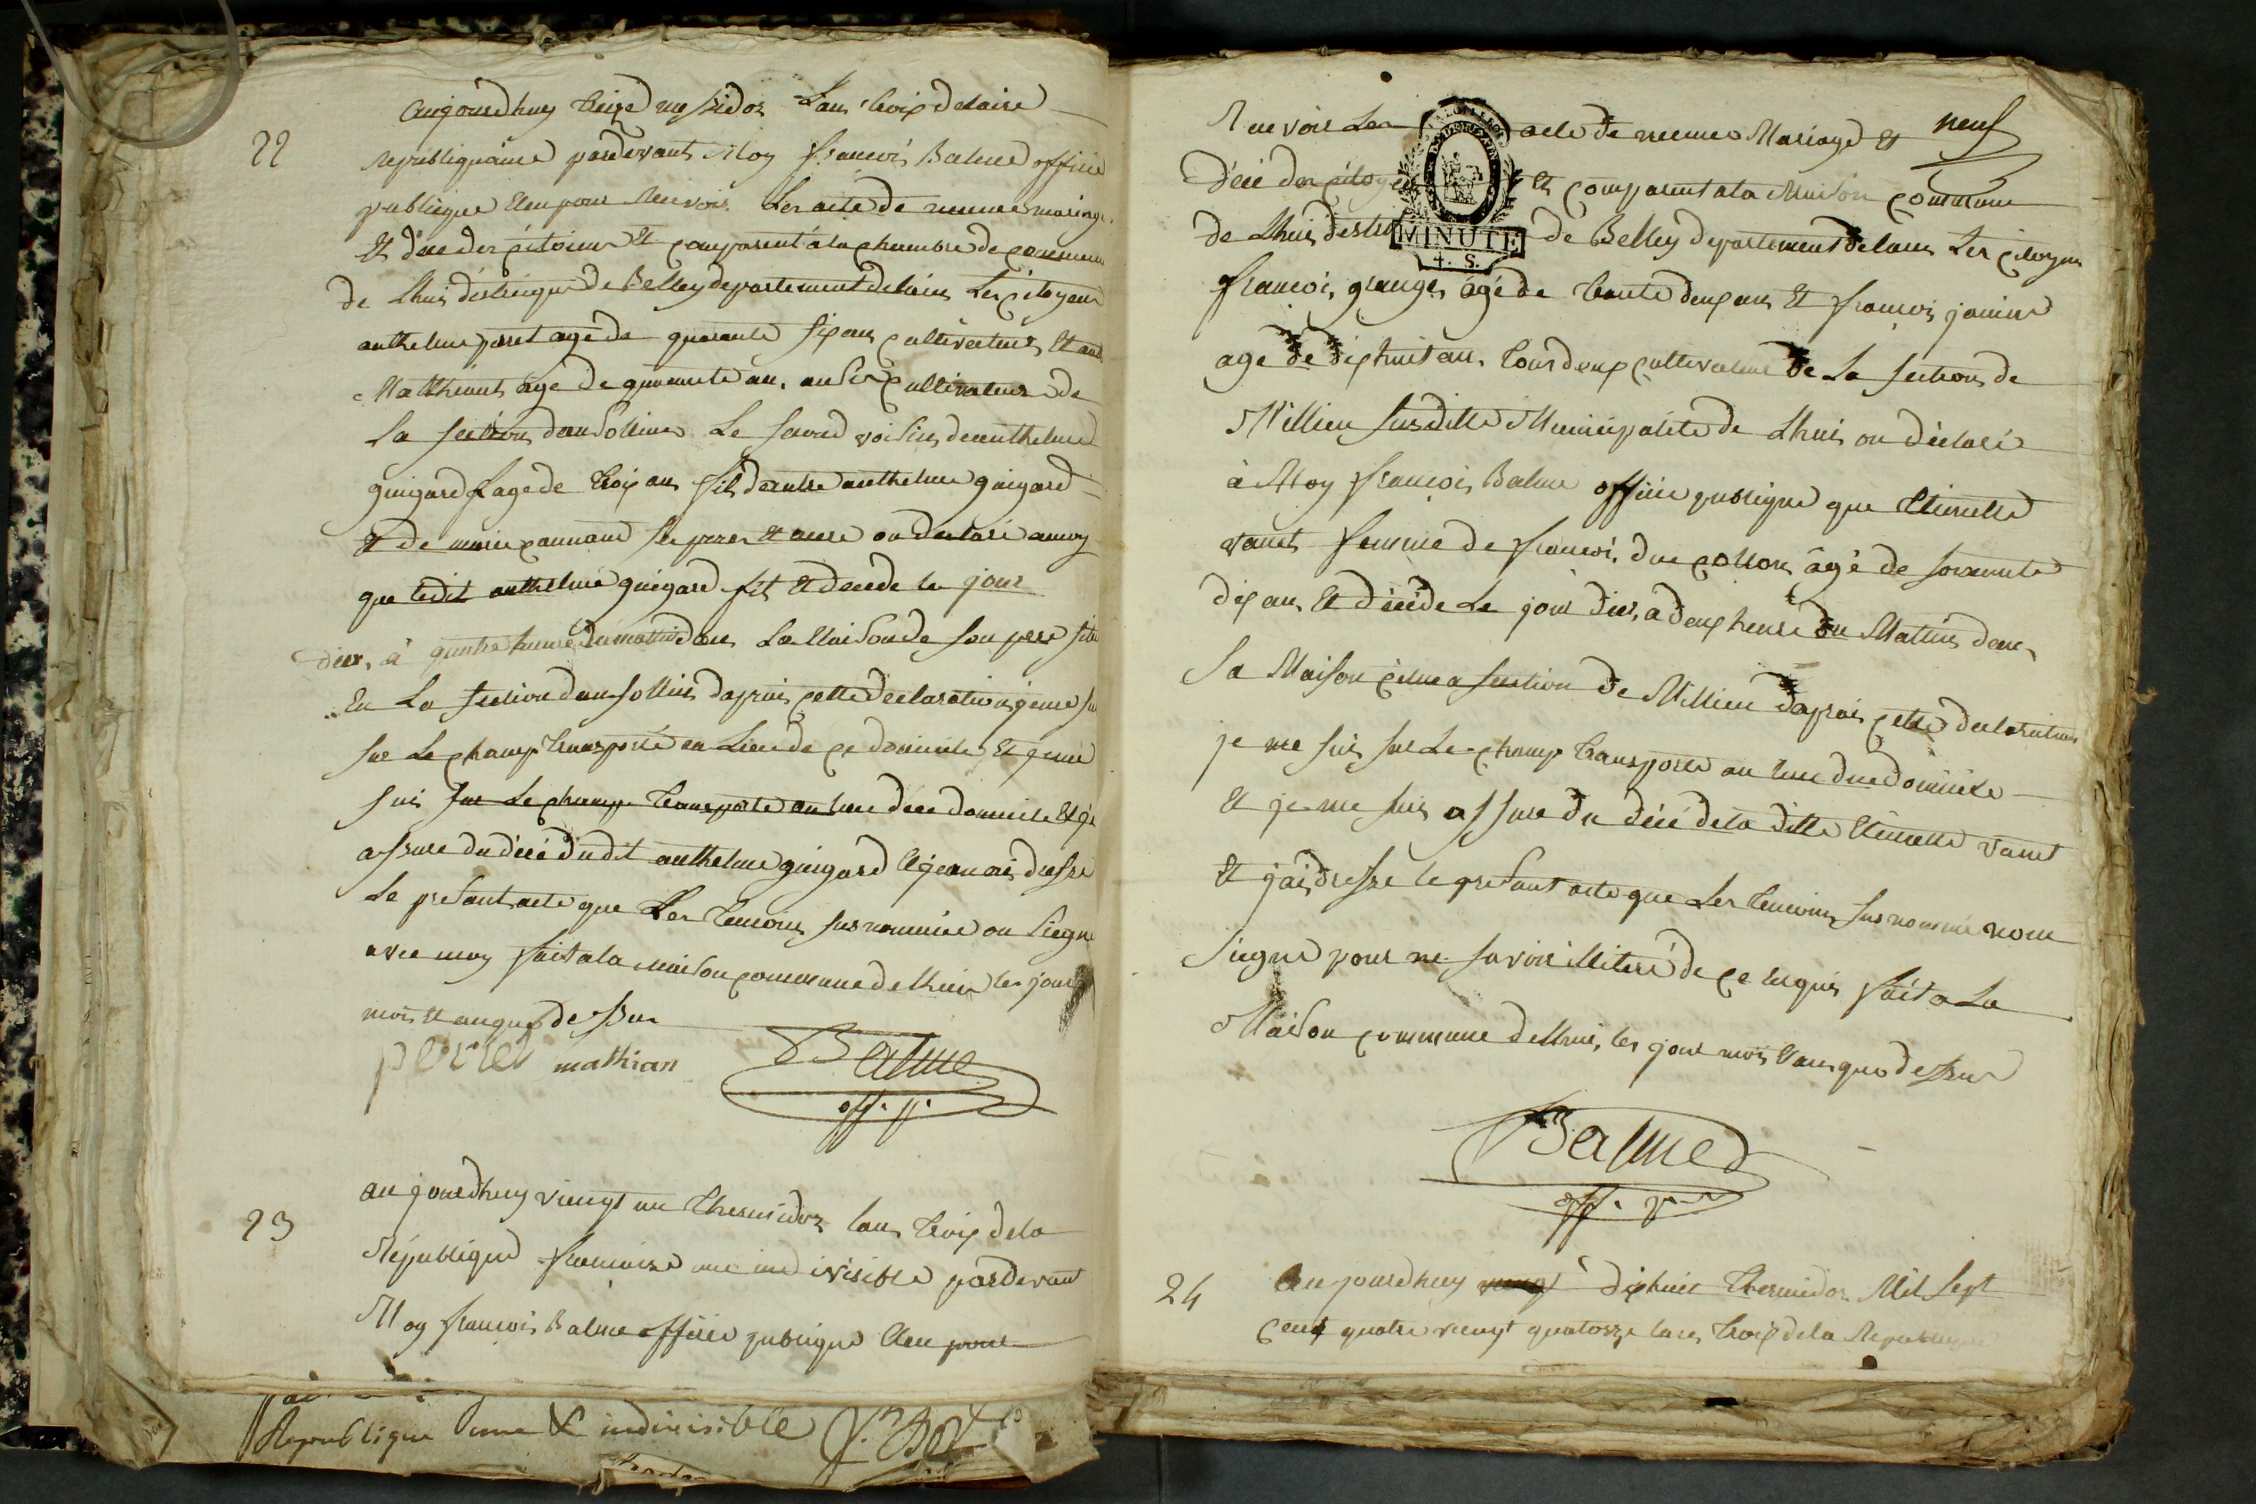 22
aujourdhuy treize messidor Lan troix delaire
republiquaine pardevant Moy francois Balme officie
publique Eleu pour recevoir Les acte de nence mariage
Et déce des citoiens Et comparent a la chambre de commune
de Lhuis distrique de Belley departement delain Les Citoyens
anthelme perret age de quarante six ans cultivateur, Et
Matthiant age de quarante an, aussi cultivateur de
La section dansollin Le segond voisin de anthelme
guigard age de troix ans fils de autre anthelme guigard
Et de marie pannand ses perer et mere on declaré a moy
que ledit anthelme guigard fils Et decede le jour
dier, a quatre heure du mattin dans La Maison de son pere situe
En La section dansollin daprais cette declaration je me sui
sur Le champ transporté au Lieu de ce domicile Et je me
suis sur Le champ transporté au lieu dece domicile Et je
assure du décé dudit anthelme guigard Et jean ais dresse
Le presant acte que Les temoins susnommée on Siegne
avec moy fait a la maison commune de lhuis les jour
mois Et an que dessur
perret mathian Balme
off. p.
23
aujourdhuy viengt un thermidor lan troix de la
République francoise une indivisible pardevant
Moy francois Balme officie publique Eleu pour
Republique une & indivisible
neuf
Recevoir Les acte de nence Mariage Et
Décé des citoyen Et comparent a la Maison commune
de Lhuis distri de Belley departement delain Les Citoyens
MINUTE
4. S.
francois granger agé de trante deux ans Et francois janin
age de dix huit an, tous deux cultivateur de La section de
Millieu susditte Municipalité de Lhuis on déclaré
à Moy francois Balme officie publique que Etiennette
vanet femme de francoi, duc collon âgé de soixante
dix ans Et décéde Le jour dier, a deux heure du Mattin dans
Sa Maison section de Millieu daprais cette declaration
je me suis sur Le champ transporté au lieu du domicile
Et je me suis assure du décé de la ditte Etiennette vanet
Et jai dresse le presant acte que Les temoins sus nommé nom
Siegne pour ne savoir illitere de ce enquis fait a La
Maison commune de lhuis, les jour mois Et an que dessur
Balme
off. p.
24
Aujourdhuy dixhuit thermidor Mil Sept
cent quatre viengt quatorze lan troix de la Republique